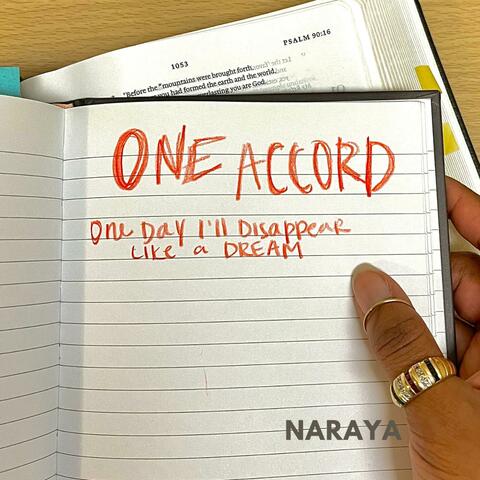 1053
PSALM 90:16
"Before the mountains were brought forth,
you had formed the earth and the world,
everlasting you are God.
ONE ACCORD
One Day I'll Disappear
Like a DREAM
NARAYA